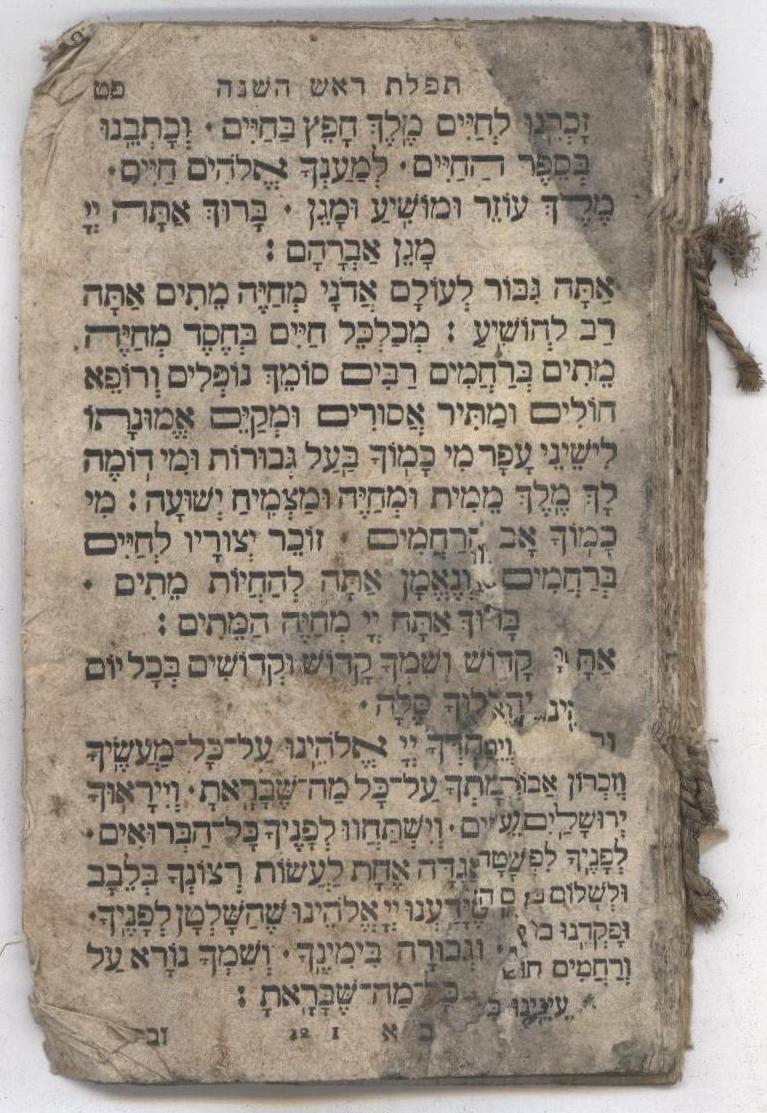 תפלת ראש השנה פט
זָכְרֵנוּ לְחַיִּים מֶלֶךְ חָפֵץ בַּחַיִּים · וְכָתְבֵנוּ
בְּסֵפֶר הַחַיִּים · לְמַעַנְךָ אֱלֹהִים חַיִּים ·
מֶלֶךְ עוֹזֵר וּמוֹשִׁיעַ וּמָגֵן · בָּרוּךְ אַתָּה יְיָ
מָגֵן אַבְרָהָם :
אַתָּה גִּבּוֹר לְעוֹלָם אֲדֹנָי מְחַיֵּה מֵתִים אַתָּה
רַב לְהוֹשִׁיעַ : מְכַלְכֵּל חַיִּים בְּחֶסֶד מְחַיֵּה
מֵתִים בְּרַחֲמִים רַבִּים סוֹמֵךְ נוֹפְלִים וְרוֹפֵא
חוֹלִים וּמַתִּיר אֲסוּרִים וּמְקַיֵּם אֱמוּנָתוֹ
לִישֵׁינֵי עָפָר מִי כָמוֹךָ בַּעַל גְּבוּרוֹת וּמִי דוֹמֶה
לָּךְ מֶלֶךְ מֵמִית וּמְחַיֶּה וּמַצְמִיחַ יְשׁוּעָה : מִי
כָמוֹךָ אָב הָרַחֲמִים · זוֹכֵר יְצוּרָיו לְחַיִּים
בְּרַחֲמִים וְנֶאֱמָן אַתָּה לְהַחֲיוֹת מֵתִים ·
בָּרוּךְ אַתָּה יְיָ מְחַיֵּה הַמֵּתִים :
קָדוֹשׁ וְשִׁמְךָ קָדוֹשׁ וּקְדוֹשִׁים בְּכָל יוֹם
סֶּלָה ·
יְיָ אֱלֹהֵינוּ עַל־כָּל־מַעֲשֶׂיךָ
עַל־כָּל מַה־שֶּׁבָּרָאתָ · וְיִירָאוּךָ
וְיִשְׁתַּחֲווּ לְפָנֶיךָ כָּל־הַבְּרוּאִים ·
לְפָנֶיךָ אֲגֻדָּה אֶחָת לַעֲשׂוֹת רְצוֹנְךָ בְּלֵבָב
יְיָ אֱלֹהֵינוּ שֶׁהַשָּׁלְטָן לְפָנֶיךָ ·
וּגְבוּרָה בִּימִינֶךָ · וְשִׁמְךָ נוֹרָא עַל
וְרַחֲמִים
כָּל־מַה־שֶּׁבָּרָאתָ :